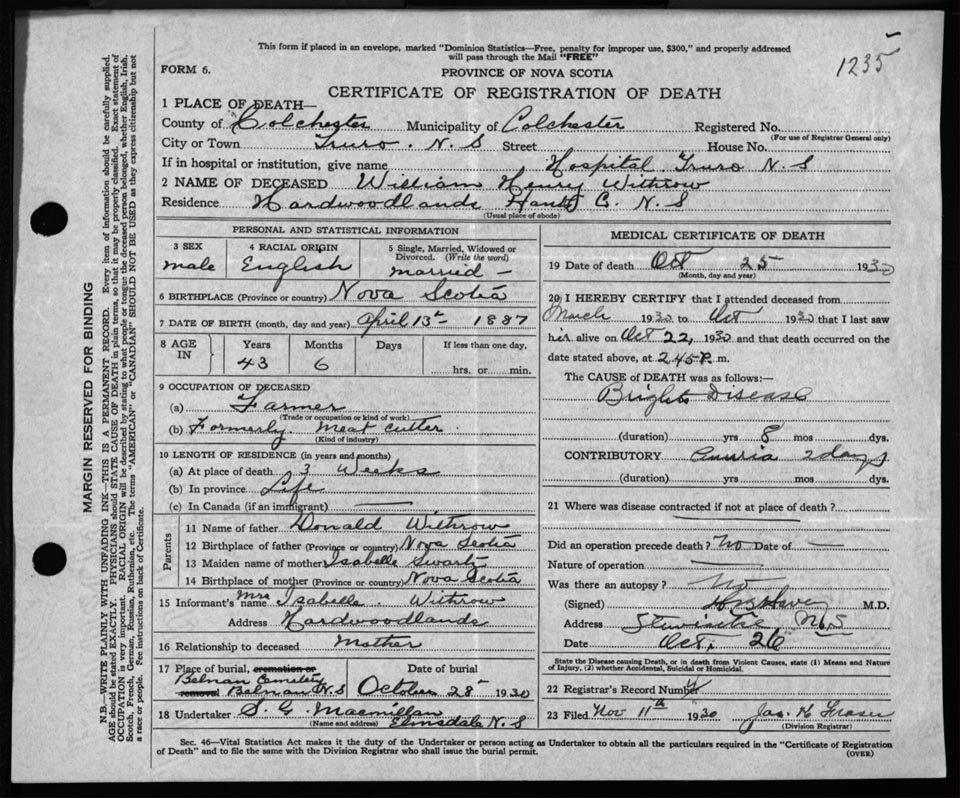 This form if placed in an envelope, marked "Dominion Statistics—Free, penalty for improper use, $300," and properly addressed
will pass through the Mail "FREE"
1235
FORM 6.
PROVINCE OF NOVA SCOTIA
CERTIFICATE OF REGISTRATION OF DEATH
1 PLACE OF DEATH—
County of Colchester Municipality of Colchester Registered No.
(For use of Registrar General only)
City or Town Truro. N. S Street House No.
If in hospital or institution, give name Hospital Truro N. S
2 NAME OF DECEASED William Henry Withrow
Residence Hardwoodlands Hants C. N. S
(Usual place of abode)
PERSONAL AND STATISTICAL INFORMATION
3 SEX 4 RACIAL ORIGIN 5 Single, Married, Widowed or
Divorced. (Write the word)
male English married —
6 BIRTHPLACE (Province or country) Nova Scotia
7 DATE OF BIRTH (month, day and year) April 13th 1887
8 AGE IN Years Months Days If less than one day,
43 6 hrs. or min.
9 OCCUPATION OF DECEASED
(a) Farmer
(Trade or occupation or kind of work)
(b) Formerly. meat cutter.
(Kind of industry)
10 LENGTH OF RESIDENCE (in years and months)
(a) At place of death 3 Weeks
(b) In province Life
(c) In Canada (if an immigrant) —
Parents
11 Name of father Donald Withrow
12 Birthplace of father (Province or country) Nova Scotia
13 Maiden name of mother Isabelle Swartz
14 Birthplace of mother (Province or country) Nova Scotia
15 Informant's name Mrs Isabelle. Withrow
Address Hardwoodlands
16 Relationship to deceased Mother
17 Place of burial, cremation or Date of burial
Belnan Cemetery
removal Belnan N. S October 28 1930
18 Undertaker S. G. Macmillan
(Name and address) Elmsdale N. S
MEDICAL CERTIFICATE OF DEATH
19 Date of death Oct 25 1930
(Month, day and year)
20 I HEREBY CERTIFY that I attended deceased from
March 1930 to Oct 1930 that I last saw
him alive on Oct 22, 1930 and that death occurred on the
date stated above, at 2.45 P. m.
The CAUSE of DEATH was as follows:—
Brights Disease
(duration) yrs 8 mos dys.
CONTRIBUTORY Anuria 2 days
(duration) yrs. mos. dys.
21 Where was disease contracted if not at place of death?
Did an operation precede death? No Date of —
Nature of operation —
Was there an autopsy? No
(Signed) M.D.
Address N.S
Date Oct. 26
State the Disease causing Death, or in death from Violent Causes, state (1) Means and Nature
of Injury, (2) whether Accidental, Suicidal or Homicidal.
22 Registrar's Record Number
23 Filed Nov 11th 1930 Jas. H Fraser
(Division Registrar)
Sec. 46—Vital Statistics Act makes it the duty of the Undertaker or person acting as Undertaker to obtain all the particulars required in the "Certificate of Registration
of Death" and to file the same with the Division Registrar who shall issue the burial permit.
(OVER)
MARGIN RESERVED FOR BINDING
N.B.—WRITE PLAINLY WITH UNFADING INK—THIS IS A PERMANENT RECORD. Every item of information should be carefully supplied.
AGE should be stated EXACTLY. PHYSICIANS should STATE CAUSE OF DEATH in plain terms, so that it may be properly classified. Exact statement of
OCCUPATION is very important. RACIAL ORIGIN will be described by stating to what people or tongue the deceased person belonged, whether English, Irish,
Scotch, French, German, Russian, Ruthenian, etc. The terms "AMERICAN" or "CANADIAN" SHOULD NOT BE USED as they express citizenship but not
a race or people. See instructions on back of Certificate.